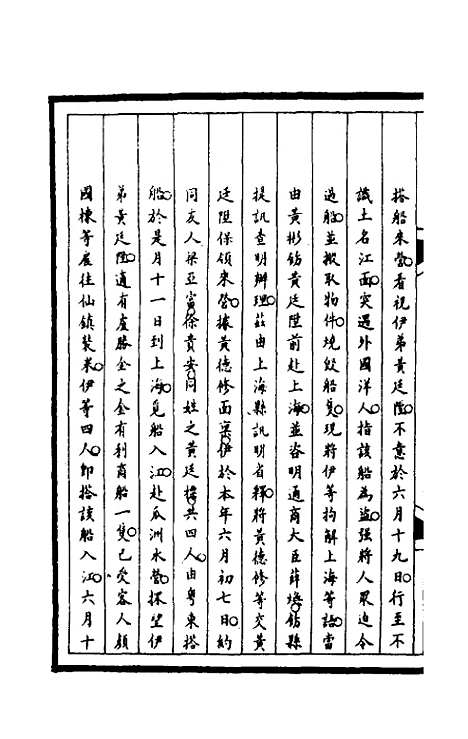 搭船來營○看視伊弟黃廷陞○不意於六月十九日○行至不
識土名江面○突遇外國洋人○指該船為盜○強將人眾迫令
過船○並搬取物件○燒毀船隻○現將伊等拘解上海等語○當
由黃彬飭黃廷陞前赴上海○並咨明通商大臣薛煥○飭縣
提訊查明辦理○茲由上海縣訊明省釋○將黃德修等交黃
廷陞保領來營○據黃德修面稟○伊於本年六月初七日○約
同友人梁亞富○徐貴安○同姓之黃廷標○共四人○由粵東搭
船○於是月十一日到上海○覓船入江○赴瓜洲水營○探望伊
弟黃廷陞○適有盧勝全之金有利商船一隻○已受客人顏
國棟等雇往仙鎮裝米○伊等四人○即搭該船入江○六月十